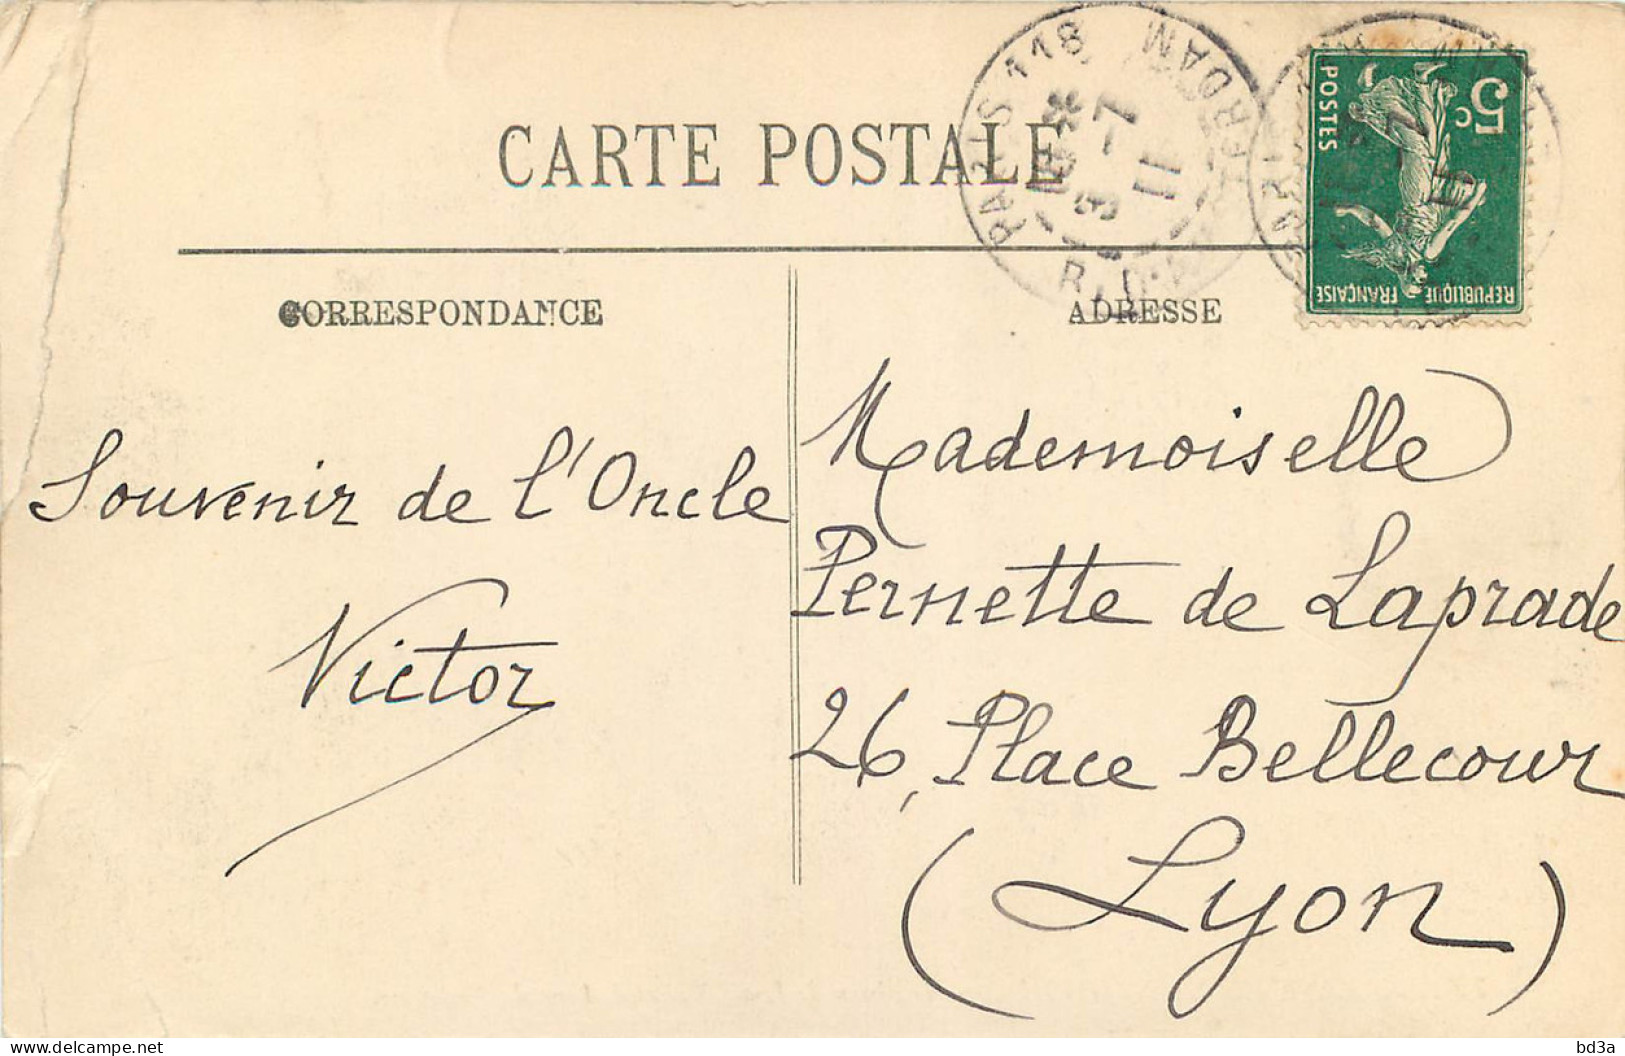 CARTE POSTALE
PARIS 118 R. D'AMSTERDAM
9 -7
11
5c
POSTES
REPUBLIQUE FRANÇAISE
CORRESPONDANCE
ADRESSE
Souvenir de l'Oncle
Victor
Mademoiselle
Pernette de Laprade
26, Place Bellecour
(Lyon)
bd3a